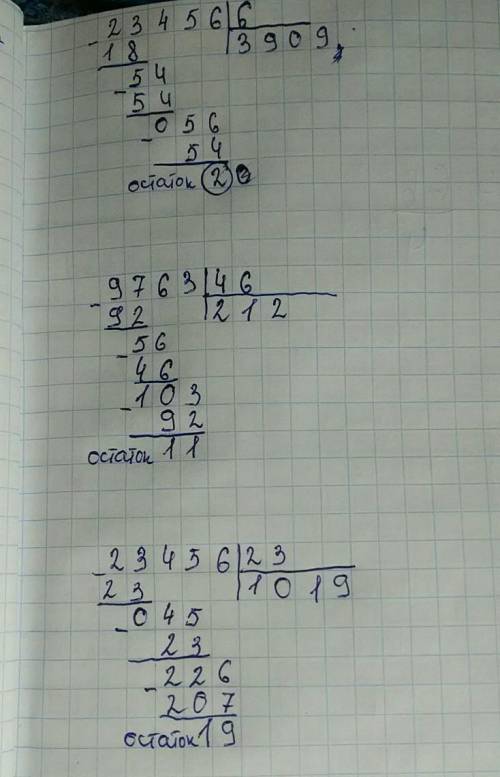 23456 6
18 3909
54
54
056
54
остаток 2
9763 46
92 212
56
46
103
92
остаток 11
23456 23
23 1019
045
23
226
207
остаток 19